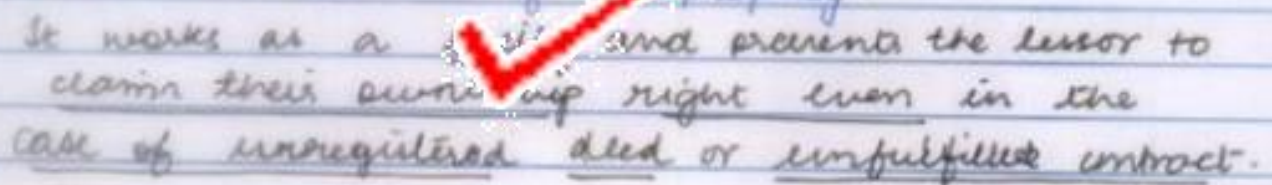 It works as a and prevents the lessor to
claim their ownership right even in the
case of unregistered deed or unfulfilled contract.